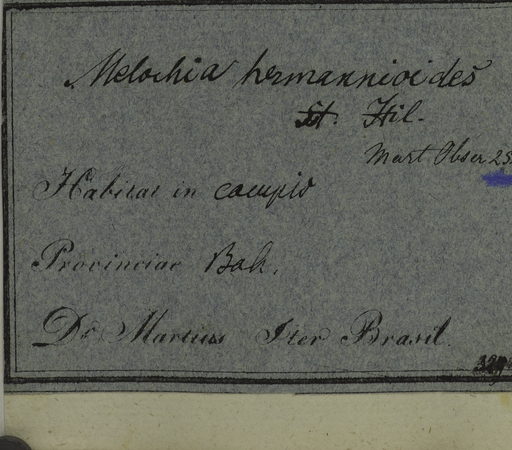 Melochia hermannioides
St. Hil.
Mart. Obser.
Habitat in campis
Provinciae Bah.
Dr. Martius Iter Brasil.